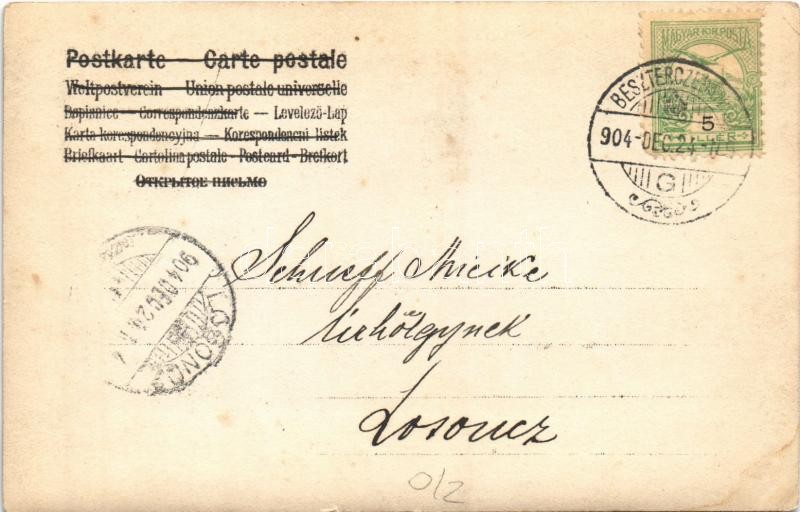 Postkarte — Carte postale
Weltpostverein — Union postale universelle
Dopisnice — Correspondenzkarte — Levelező-Lap
Karta korespondencyjna — Korespondenční lístek
Briefkaart — Cartolina postale — Postcard — Brefkort
Открытое письмо
MAGYAR KIR. POSTA
5
FILLER
BESZTERCZE
904 DEC. 24
G
LOSONCZ
904 DEC 24
Schueff Micike
úrhölgynek
Losoncz
0/2